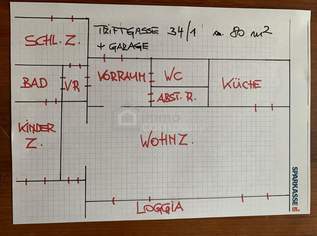 TRIFTGASSE 34/1 ca. 80 m²
+ GARAGE
SCHL. Z.
BAD
VR
VORRAUM
WC
ABST. R.
KÜCHE
KINDER
Z.
WOHNZ.
LOGGIA
SPARKASSE